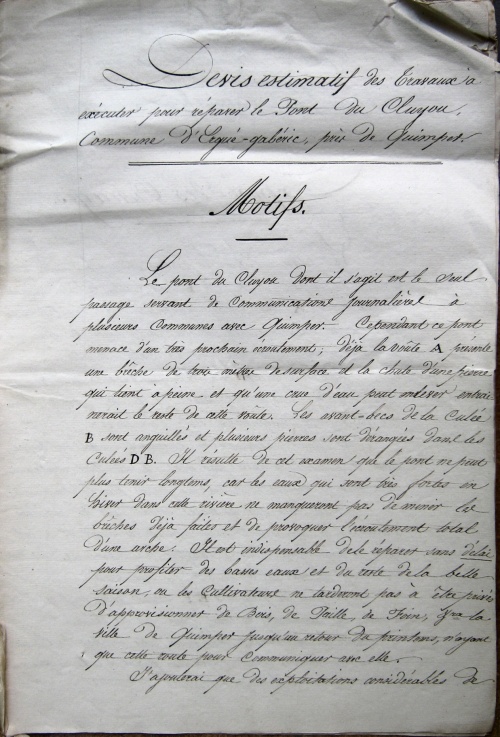 Devis estimatif des Travaux à
exécuter pour réparer le Pont du Cluyou,
Commune d'Ergué-gabéric, près de Quimper.
Motifs.
Le pont du Cluyou dont il s'agit est le seul
passage servant de Communication Journalière à
plusieurs Communes avec Quimper. Cependant ce pont
menace d'un très prochain écroulement; déjà la voûte A présente
une brêche de trois mètres de surface et la chute d'une pierre
qui tient à peine et qu'une crue d'eau peut enlever entrai
nerait le reste de cette voute. Les avant-becs de la Culée
B sont anguillés et plusieurs pierres sont dérangées dans les
Culées D B. Il résulte de cet examen que le pont ne peut
plus tenir longtems, car les eaux qui sont très fortes en
hiver dans cette rivière ne manqueront pas de miner les
brêches déjà faites et de provoquer l'écroulement total
d'une arche. Il est indispensable de le réparer sans délai
pour profiter des basses eaux et du reste de la belle
saison, ou les Cultivateurs ne tarderont pas à être privés
d'approvisionner de Bois, de Paille, de Foin, &ra la
ville de Quimper jusqu'au retour du printems, n'ayant
que cette route pour Communiquer avec elle.
J'ajouterai que des exploitations considérables de